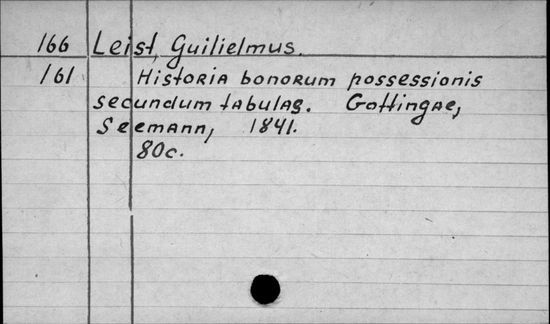 166 Leist, Guilielmus.
161 Historia bonorum possessionis
secundum tabulas. Gottingae,
Seemann, 1841.
80c.